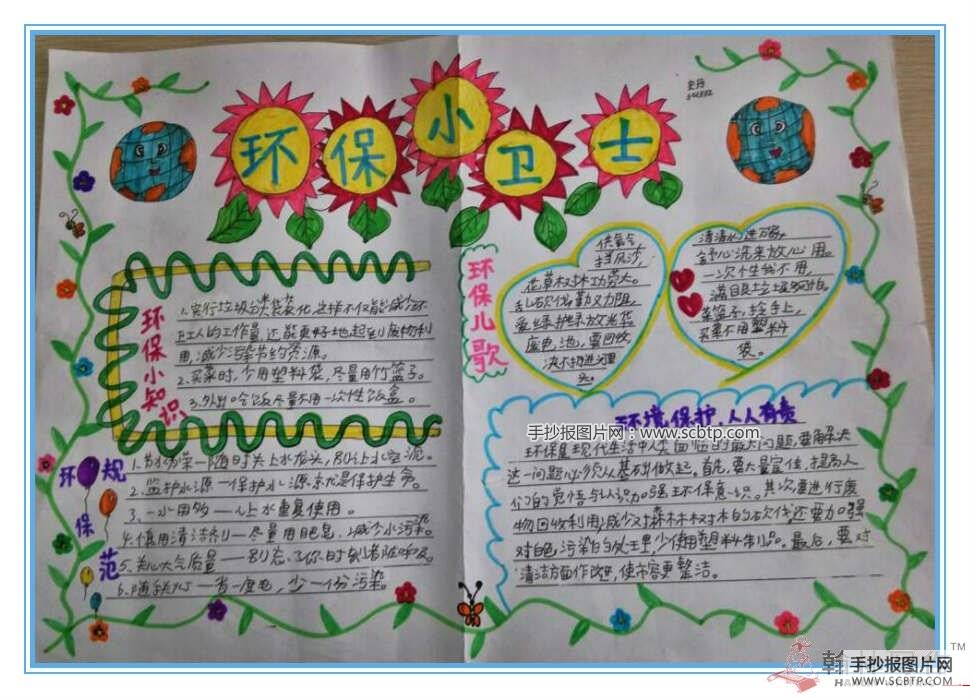 环保小卫士
环保小知识
1.实行垃圾分类袋装化,这样不仅能减少环
卫工人的工作量,还能更好地起到废物利
用,减少污染节约资源。
2.买菜时,少用塑料袋,尽量用竹篮子。
3.外出吃饭尽量不用一次性饭盒。
环保规范
1.节水为荣—随时关上水龙头,别让水空流。
2.监护水源—保护水源就是保护生命。
3.一水用多—让水重复使用。
4.慎用清洁剂—尽量用肥皂,减少水污染。
5.关心大气质量—别忘了你时刻都在呼吸。
6.随手关灯—省一度电,少一份污染。
环保儿歌
供氧气
挡风沙,
花草树木功劳大。
乱砍伐,勤父力阻,
爱绿护绿放光华。
废电池,要回收,
决不扔进
清清的
舒心洗来放心用。
一次性我不用,
满目是垃圾
菜篮子,拎手上,
买菜不用塑料
袋。
环境保护,人人有责
环保是现代生活中人类面临的最大问题,要解决
这一问题必须从基础做起。首先,要大量宣传,提高人
们的觉悟与认识,加强环保意识。其次要进行废
物回收利用,减少对森林树木的砍伐,还要加强
对白色污染的处理,少使用塑料制品。最后,要对
清洁方面作改进,使市容更整洁。
手抄报图片网:www.scbtp.com
TM
手抄报图片网
WWW.SCBTP.COM